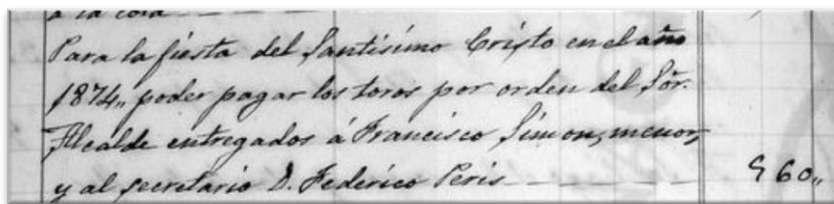 a la cora
Para la fiesta del Santísimo Cristo en el año
1874,, poder pagar los toros por orden del Sõr.
Alcalde entregados á Francisco Simon, menor,
y al secretario D. Federico Peris 960,,